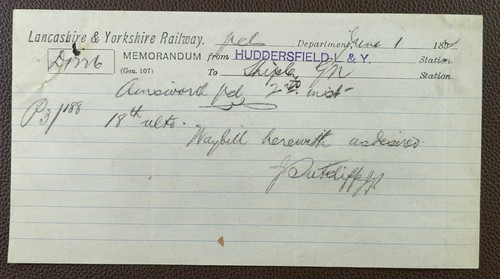 Lancashire & Yorkshire Railway. Department, June 1 188
MEMORANDUM from HUDDERSFIELD L. & Y. Station.
(Gen. 107) To Shipley GN Station.
Ainsworth pd 2 inst
P3/188 18th ulto.
Waybill herewith as desired
J Sutcliffe